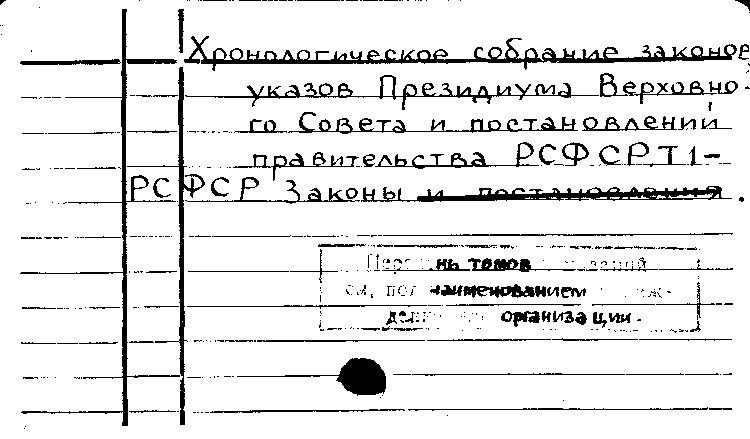 Хронологическое собрание законов
указов Президиума Верховно-
го Совета и постановлений
правительства РСФСР. Т1-
РСФСР Законы и постановления.
нь томов
наименованием
организации.